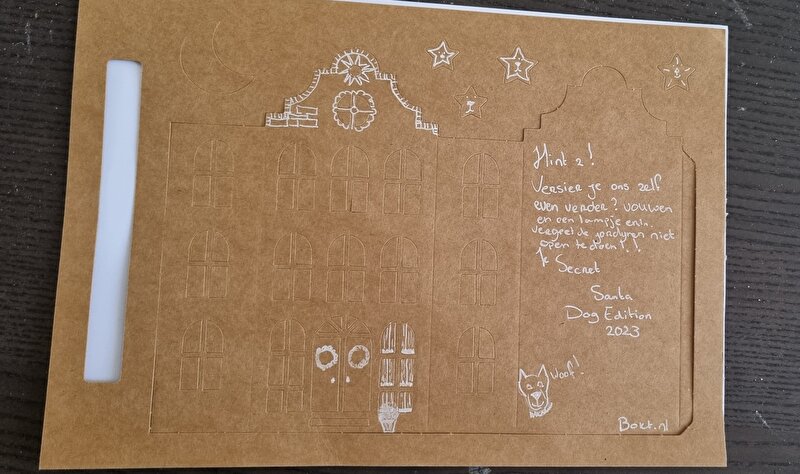 Hint 2!
Versier je ons zelf
even verder? vouwen
en een lampje erin.
vergeet de gordijnen niet
open te doen!!
Je Secret
Santa
Dog Edition
2023
Woof!
Bokt.nl